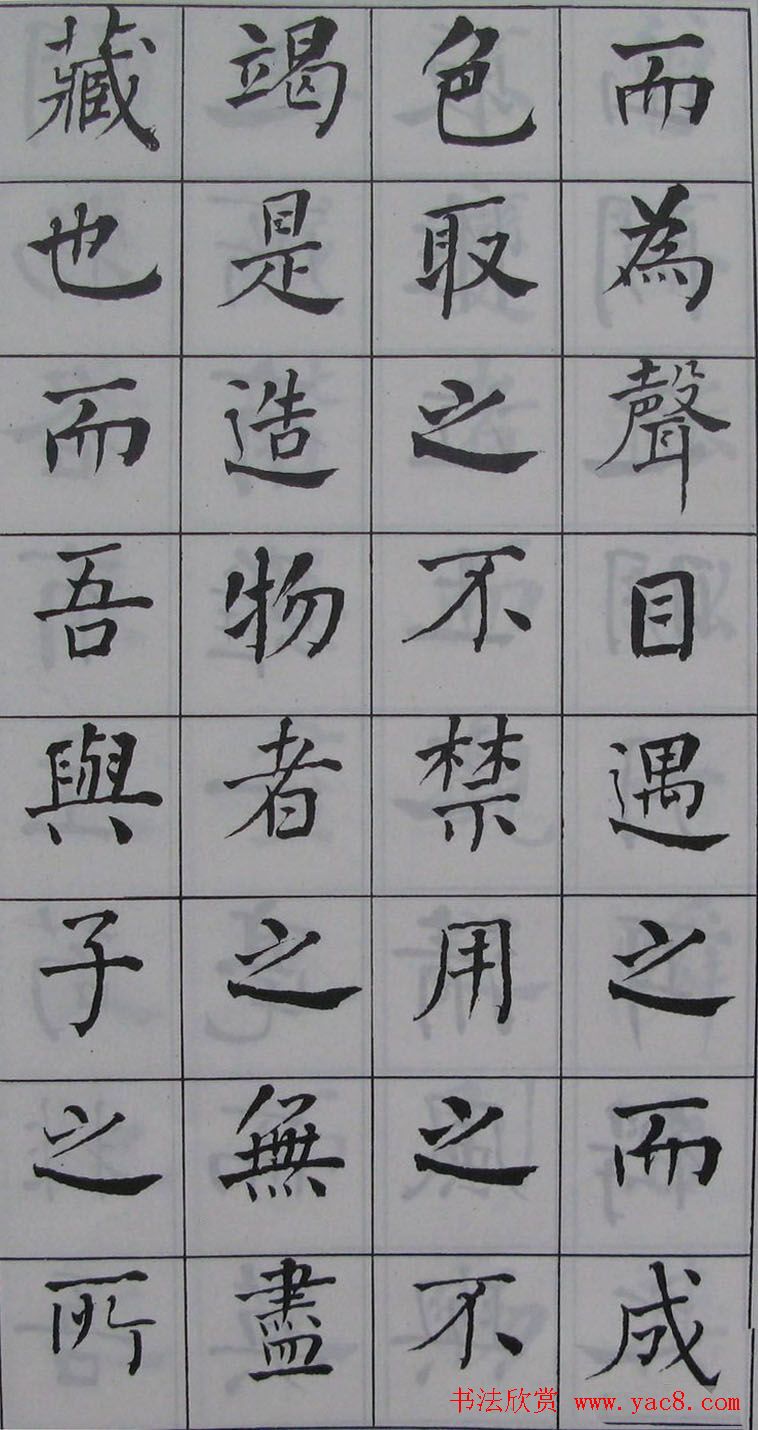 而為聲目遇之而成
色取之不禁用之不
竭是造物者之無盡
藏也而吾與子之所
书法欣赏 www.yac8.com